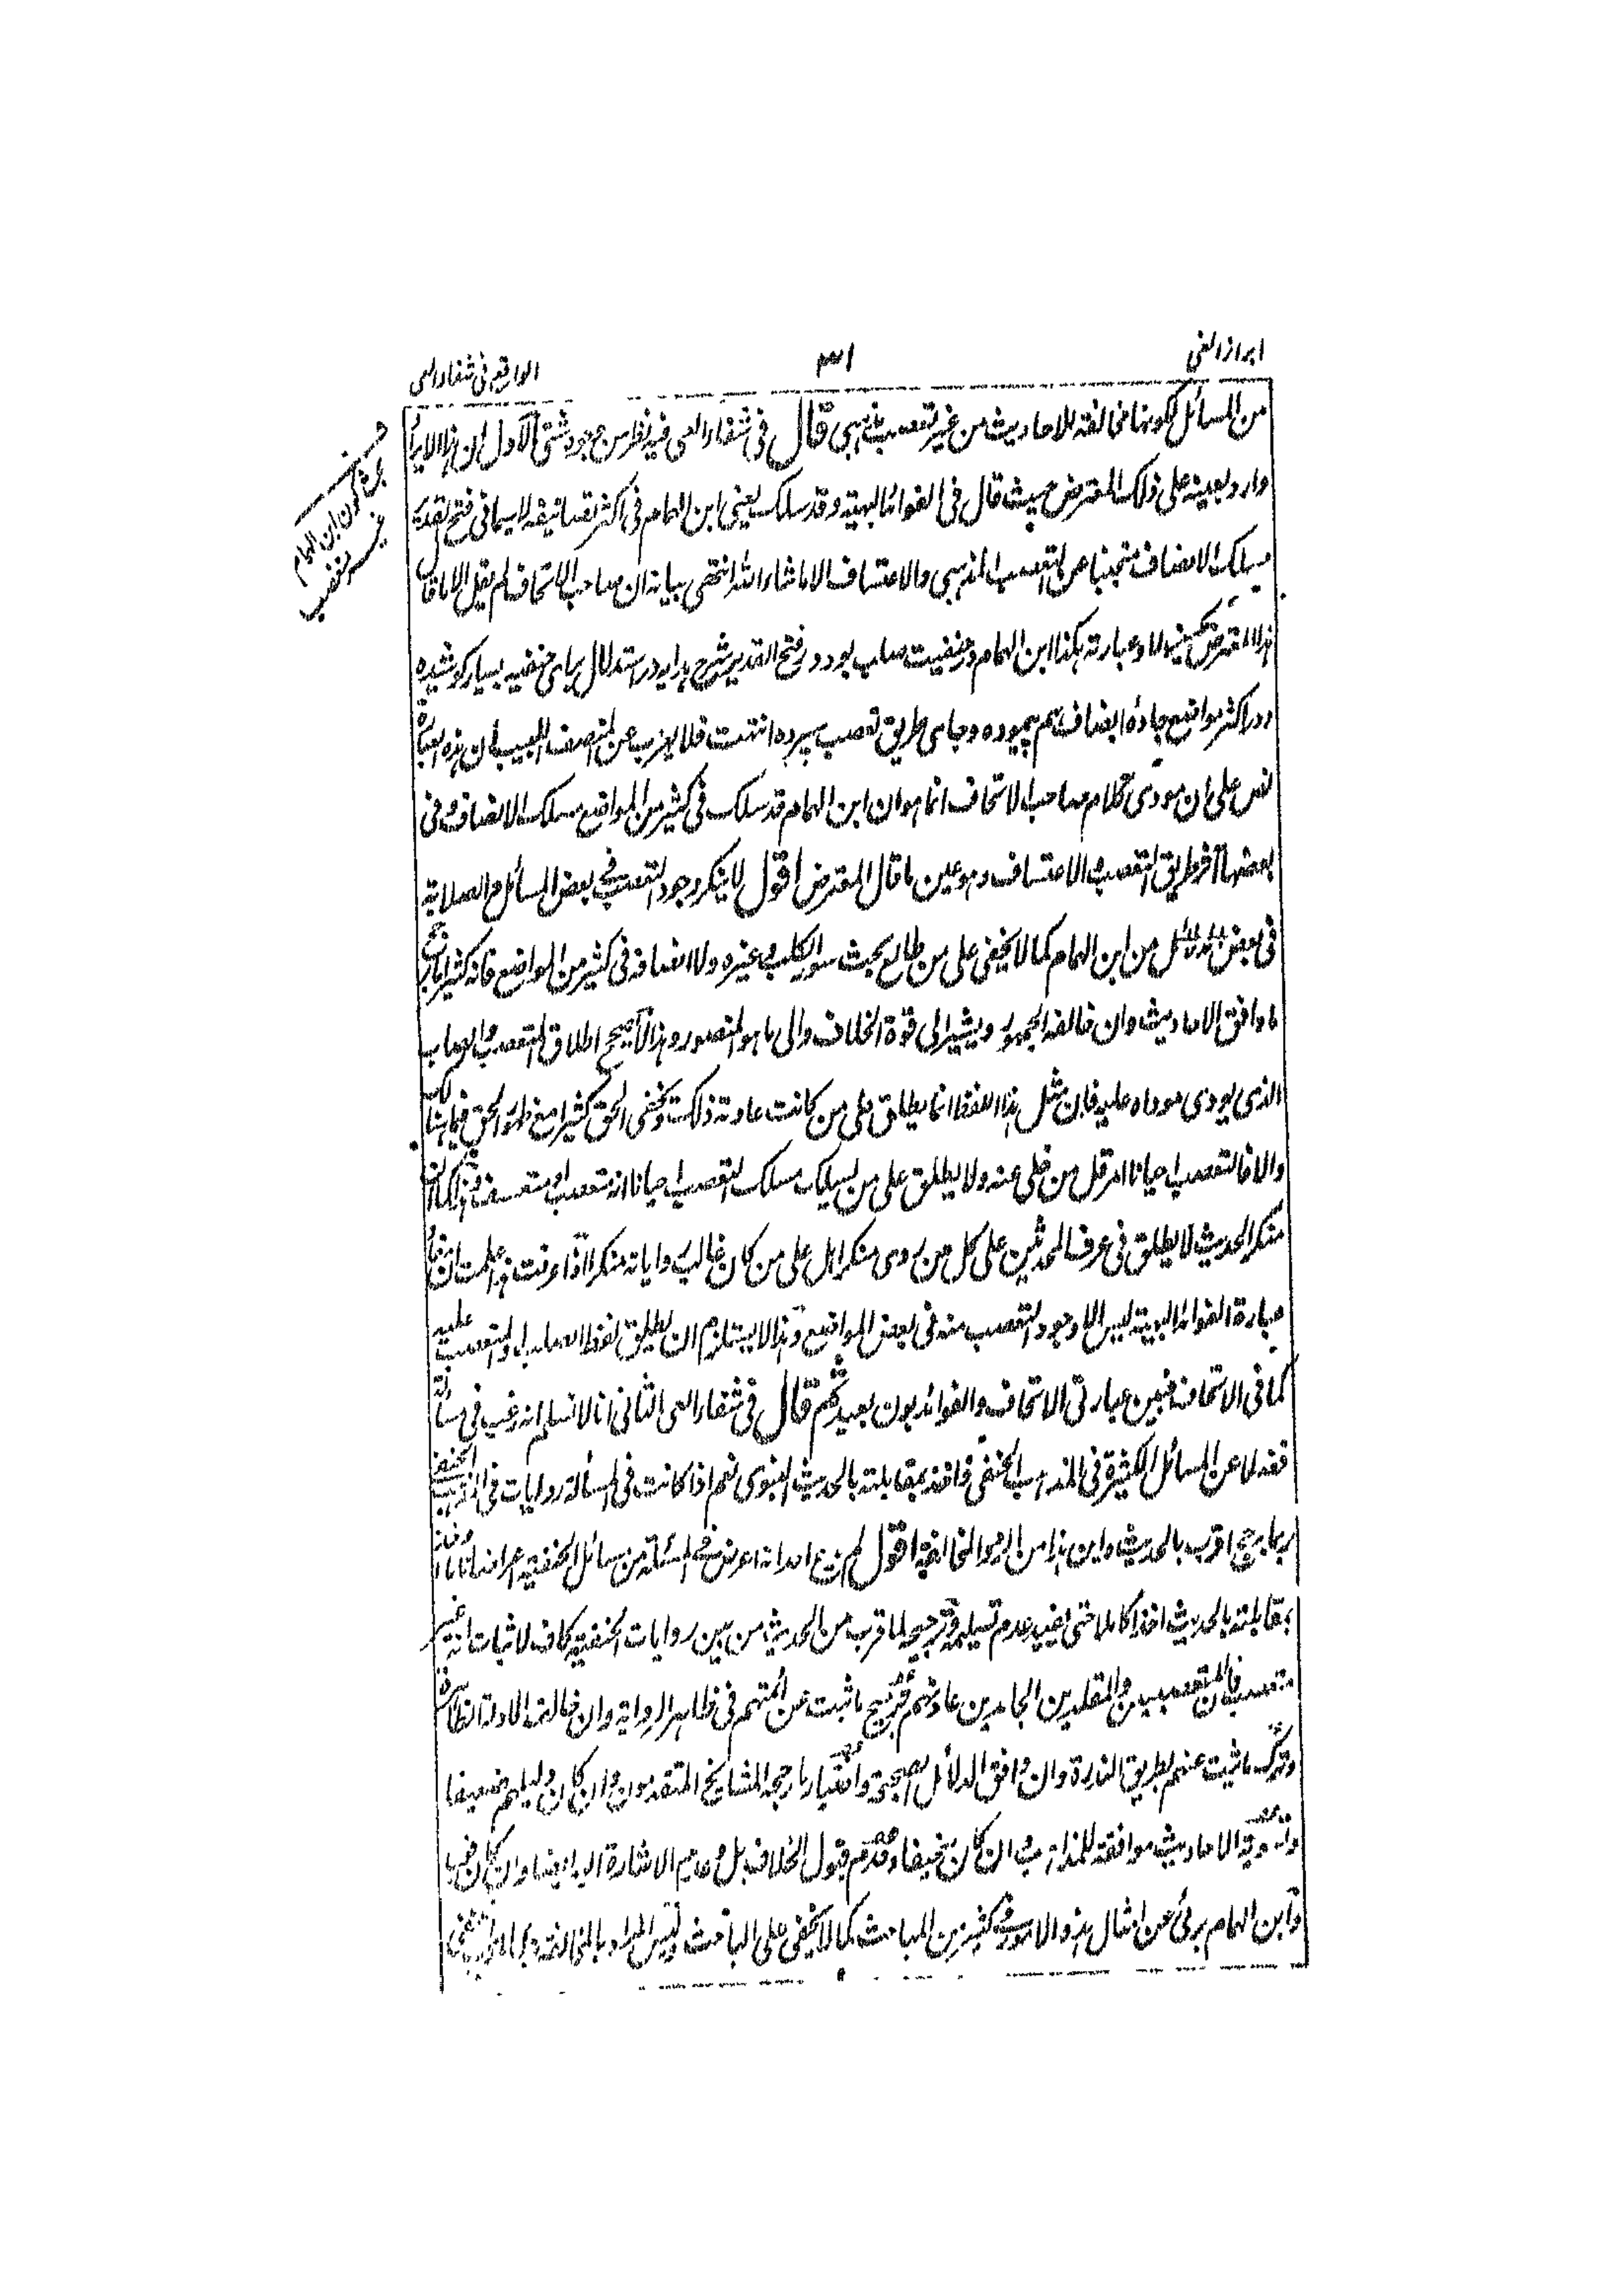 ابراز الغي
٣١
الواقع في شفاء العي
من المسائل لكونها مخالفة للاحاديث من غير تعصب مذهبي قال في شفاء العي فيه نظر من وجوه شتى الاول ان هذا الايراد
وارد بعينه على ذلك المعترض حيث قال في الفوائد البهية وقد سلك يعني ابن الهمام في اكثر تصانيفه لا سيما في فتح القدير
مسلك الانصاف متجنبا عن التعصب المذهبي والاعتساف الا ما شاء الله انتهى بيانه ان صاحب الاتحاف لم يقل الا ما قال
هذا المعترض وعبارته هكذا ابن الهمام در حنفيت صلب بود ودر فتح القدير شرح هدايه در استدلال براى حنفيه بسيار كوشيده
ودر اكثر مواضع جادۀ انصاف هم پيموده وجاى طريق تعصب سپرده انتهت فلا يعزب عن المنصف اللبيب ان هذه العبارة
نص على ان مودى كلام صاحب الاتحاف انما هو ان ابن الهمام قد سلك في كثير من المواضع مسلك الانصاف وفي
بعضها آثر طريق التعصب والاعتساف وهو عين ما قال المعترض اقول لا ينكر وجود التعصب في بعض المسائل والصلابة
في بعض الدلائل من ابن الهمام كما لا يخفى على من طالع بحث سور الكلب وغيره ولا انصافه في كثير من المواضع فانه كثيرا ما يرجح
ما وافق الاحاديث وان خالفه الجمهور ويشير الى قوة الخلاف والى ما هو المنصور وهذا لا يصحح اطلاق المتعصب والصلب
الذي يودى موداه عليه فان مثل هذا اللفظ انما يطلق على من كانت عادته ذلك ويخفى الحق كثيرا مع ظهور الحق فيما هنالك
والا فالتعصب احيانا امر قل من خلى عنه ولا يطلق على من يسلك مسلك التعصب احيانا انه متعصب او متعسف وهذا كما ان
منكر الحديث لا يطلق في عرف المحدثين على كل من روى منكرا بل على من كان غالب رواياته منكرا اذا عرفت هذا علمت ان مفاد
عبارة الفوائد البهية ليس الا وجود التعصب منه في بعض المواضع وهذا لا يستلزم ان يطلق لفظ الصلب او المتعصب عليه
كما في الاتحاف فبين عبارتي الاتحاف والفوائد بون بعيد ثم قال في شفاء العي الثاني انا لا نسلم انه رغب في مسألة
فضلا عن المسائل الكثيرة في المذهب الحنفي فاخذ بمقابلته بالحديث النبوي نعم اذا كانت في المسألة روايات في المذهب الحنفي
ربما يرجح اقرب بالحديث واين هذا من المخالفة اقول لم يدع احد انه اعرض في مسألة من مسائل الحنفية اعراضا تاما واخذ
بمقابلته بالحديث اخذا كاملا حتى يفيد عدم تسليمه وترجيحه لما قرب من الحديث من بين روايات الحنفية كاف لاثبات انه غير
متعصب فان المتعصبين والمقلدين الجامدين عادتهم ترجيح ما ثبت عن ائمتهم في ظاهر الرواية وان خالفه الادلة الظاهرة
وترك ما ثبت عنهم بطريق الندرة وان وافق الدلائل الصحيحة واختيار ما رجحه المشايخ المتقدمون وان كان دليلهم ضعيفا
الاحاديث موافقة للمذاهب وان كان سخيفا وعدم قبول الخلاف بل وعدم الاشارة اليه ايضا وان كان
وابن الهمام برئ عن امثال هذه الامور في كثير من المباحث كما لا يخفى على الباحث وليس المراد بالمخالفة
ابن الهمام